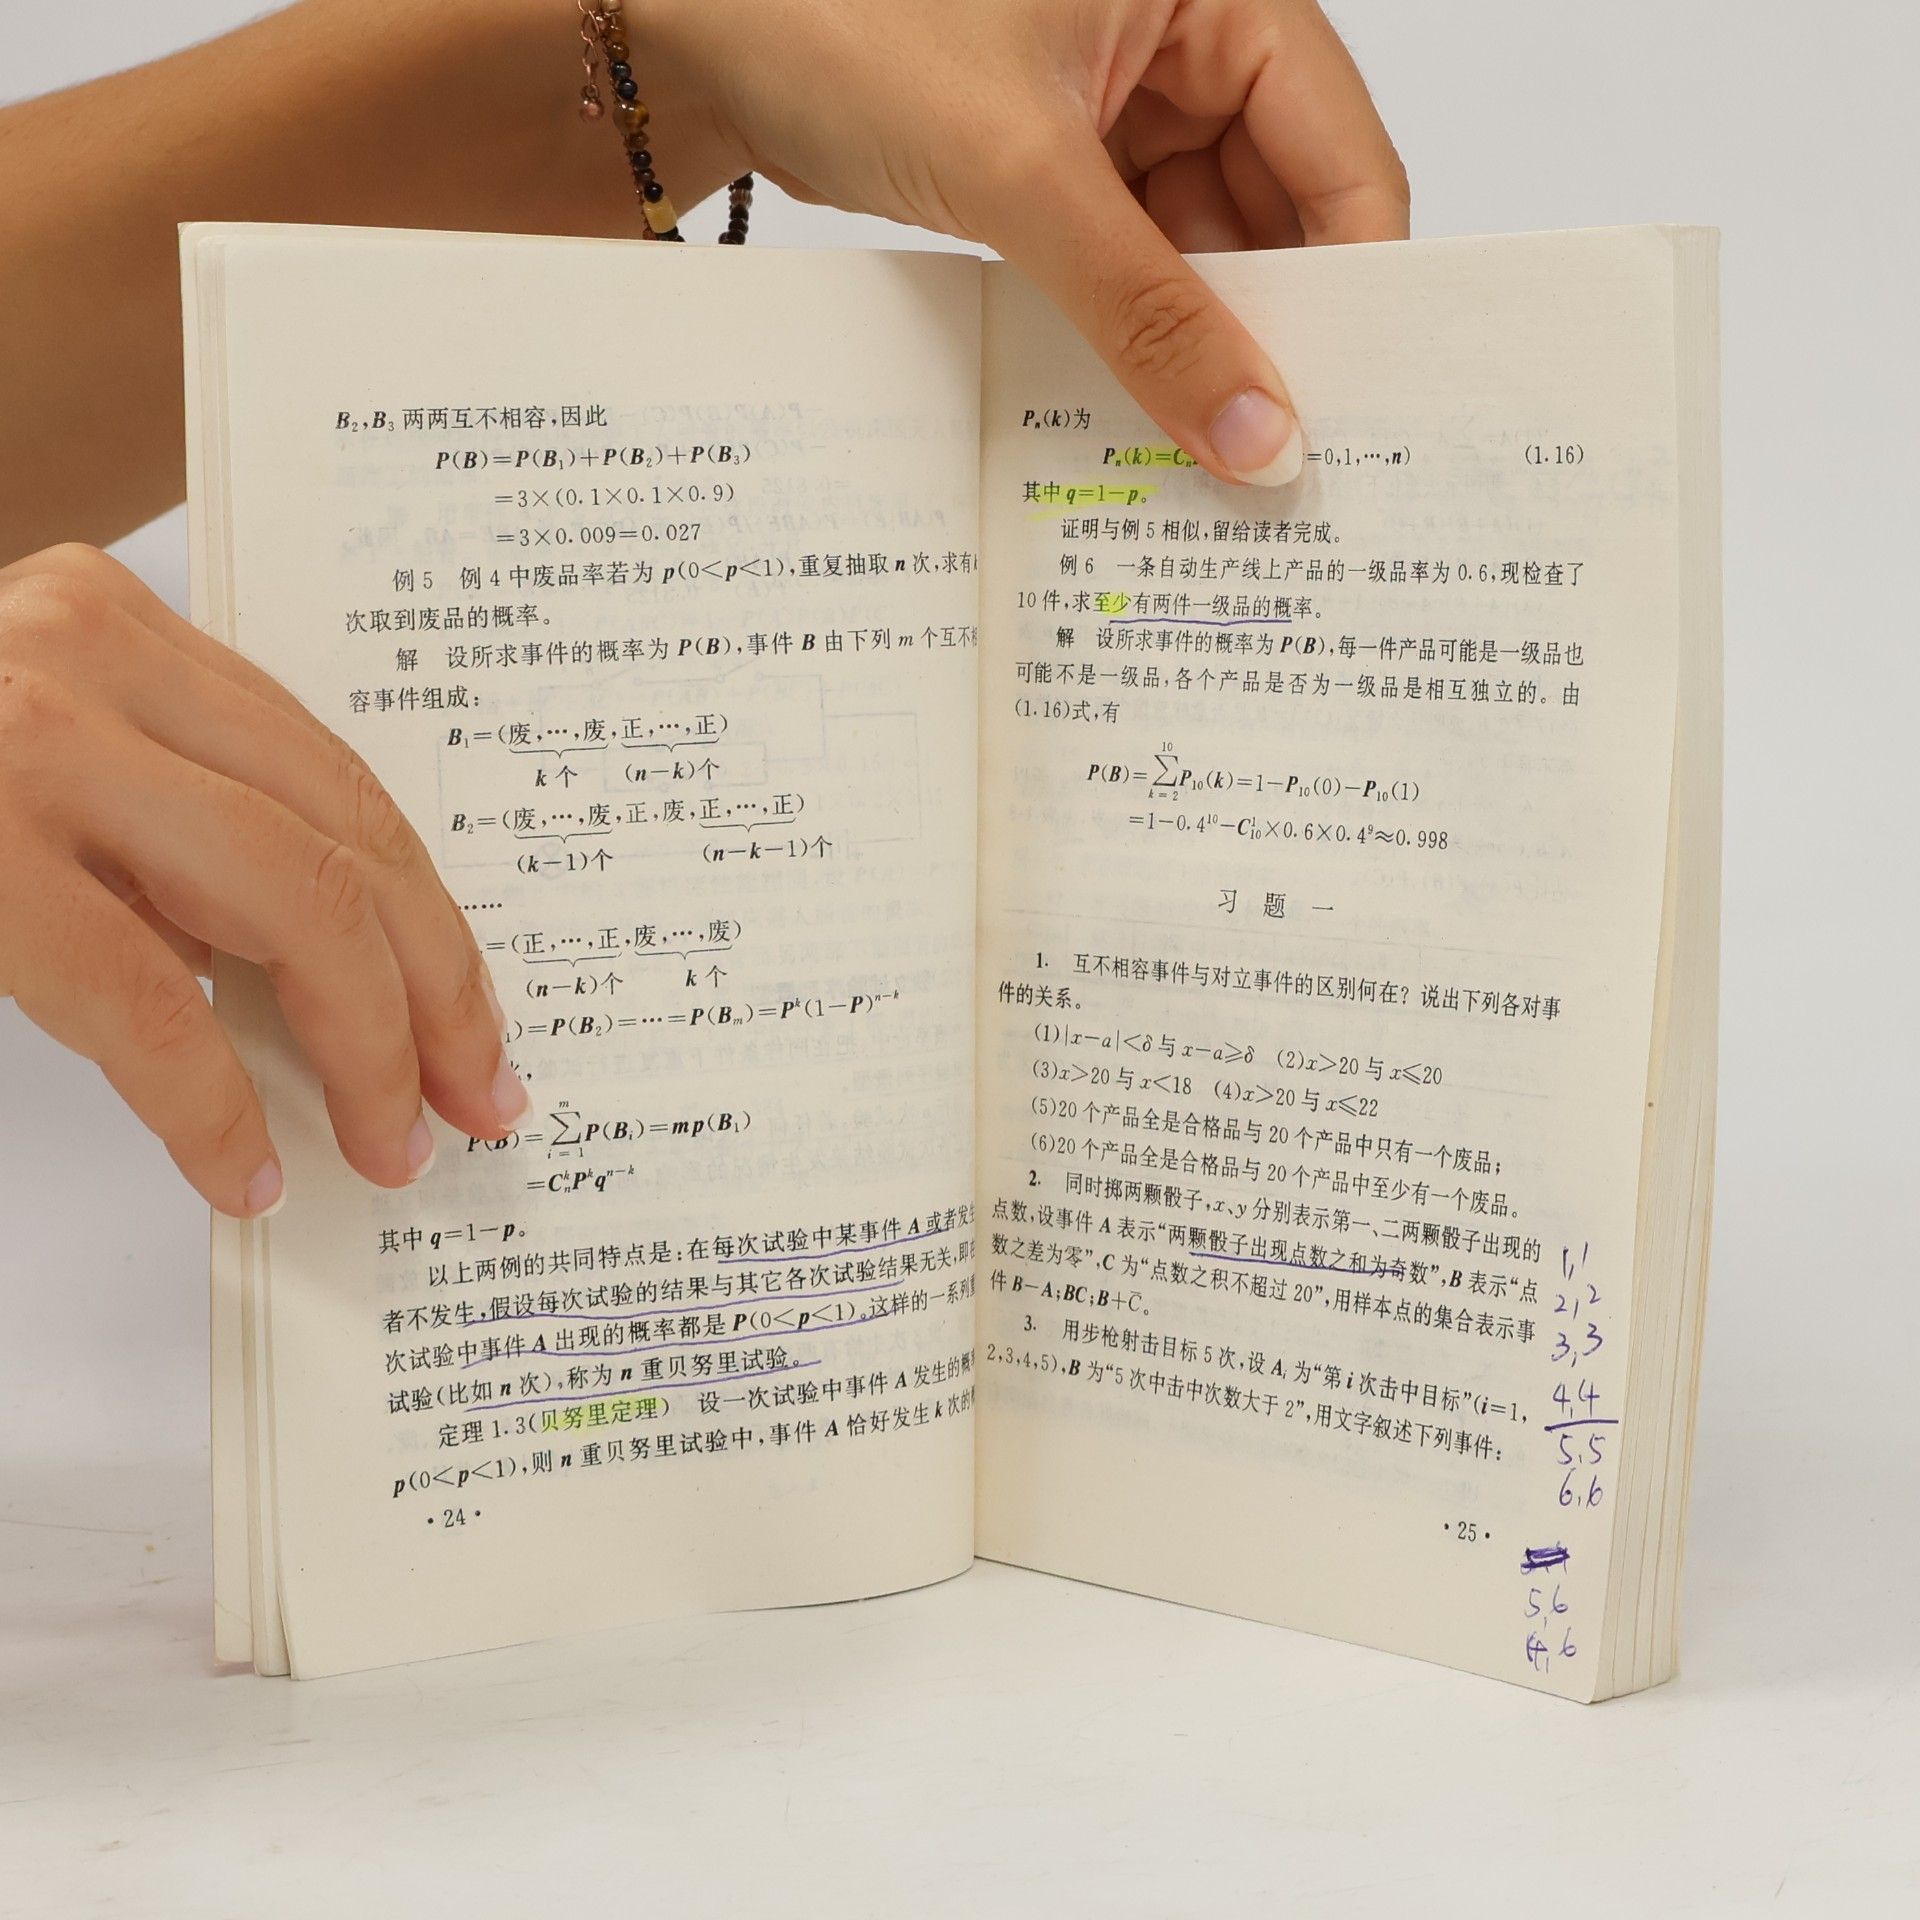 B₂,B₃ 两两互不相容,因此
P(B)=P(B₁)+P(B₂)+P(B₃)
=3×(0.1×0.1×0.9)
=3×0.009=0.027
例5 例4中废品率若为 p(0<p<1),重复抽取 n 次,求有
次取到废品的概率。
解 设所求事件的概率为 P(B),事件 B 由下列 m 个互不
容事件组成:
B₁=(废,…,废,正,…,正)
k 个 (n-k)个
B₂=(废,…,废,正,废,正,…,正)
(k-1)个 (n-k-1)个
……
=(正,…,正,废,…,废)
(n-k)个 k 个
₁)=P(B₂)=…=P(Bₘ)=Pᵏ(1-P)ⁿ⁻ᵏ
,
P(B)=∑ᵢ₌₁ᵐP(Bᵢ)=mp(B₁)
=CₙᵏPᵏqⁿ⁻ᵏ
其中 q=1-p。
以上两例的共同特点是:在每次试验中某事件 A 或者发生
者不发生,假设每次试验的结果与其它各次试验结果无关,即在
次试验中事件 A 出现的概率都是 P(0<p<1)。这样的一系列
试验(比如 n 次),称为 n 重贝努里试验。
定理1.3(贝努里定理) 设一次试验中事件 A 发生的概
p(0<p<1),则 n 重贝努里试验中,事件 A 恰好发生 k 次的
·24·
Pₙ(k)为
Pₙ(k)=Cₙ =0,1,…,n) (1.16)
其中 q=1-p。
证明与例5相似,留给读者完成。
例6 一条自动生产线上产品的一级品率为0.6,现检查了
10件,求至少有两件一级品的概率。
解 设所求事件的概率为 P(B),每一件产品可能是一级品也
可能不是一级品,各个产品是否为一级品是相互独立的。由
(1.16)式,有
P(B)=∑ₖ₌₂¹⁰P₁₀(k)=1-P₁₀(0)-P₁₀(1)
=1-0.4¹⁰-C₁₀¹×0.6×0.4⁹≈0.998
习 题 一
1. 互不相容事件与对立事件的区别何在? 说出下列各对事
件的关系。
(1)|x-a|<δ 与 x-a⩾δ (2)x>20 与 x⩽20
(3)x>20 与 x<18 (4)x>20 与 x⩽22
(5)20个产品全是合格品与20个产品中只有一个废品;
(6)20个产品全是合格品与20个产品中至少有一个废品。
2. 同时掷两颗骰子,x、y 分别表示第一、二两颗骰子出现的
点数,设事件 A 表示“两颗骰子出现点数之和为奇数”,B 表示“点
数之差为零”,C 为“点数之积不超过20”,用样本点的集合表示事
件 B-A;BC;B+C̅。
3. 用步枪射击目标5次,设 Aᵢ 为“第 i 次击中目标”(i=1,
2,3,4,5),B 为“5次中击中次数大于2”,用文字叙述下列事件:
·25·
1,1
2,2
3,3
4,4
5,5
6,6
5,6
4,6